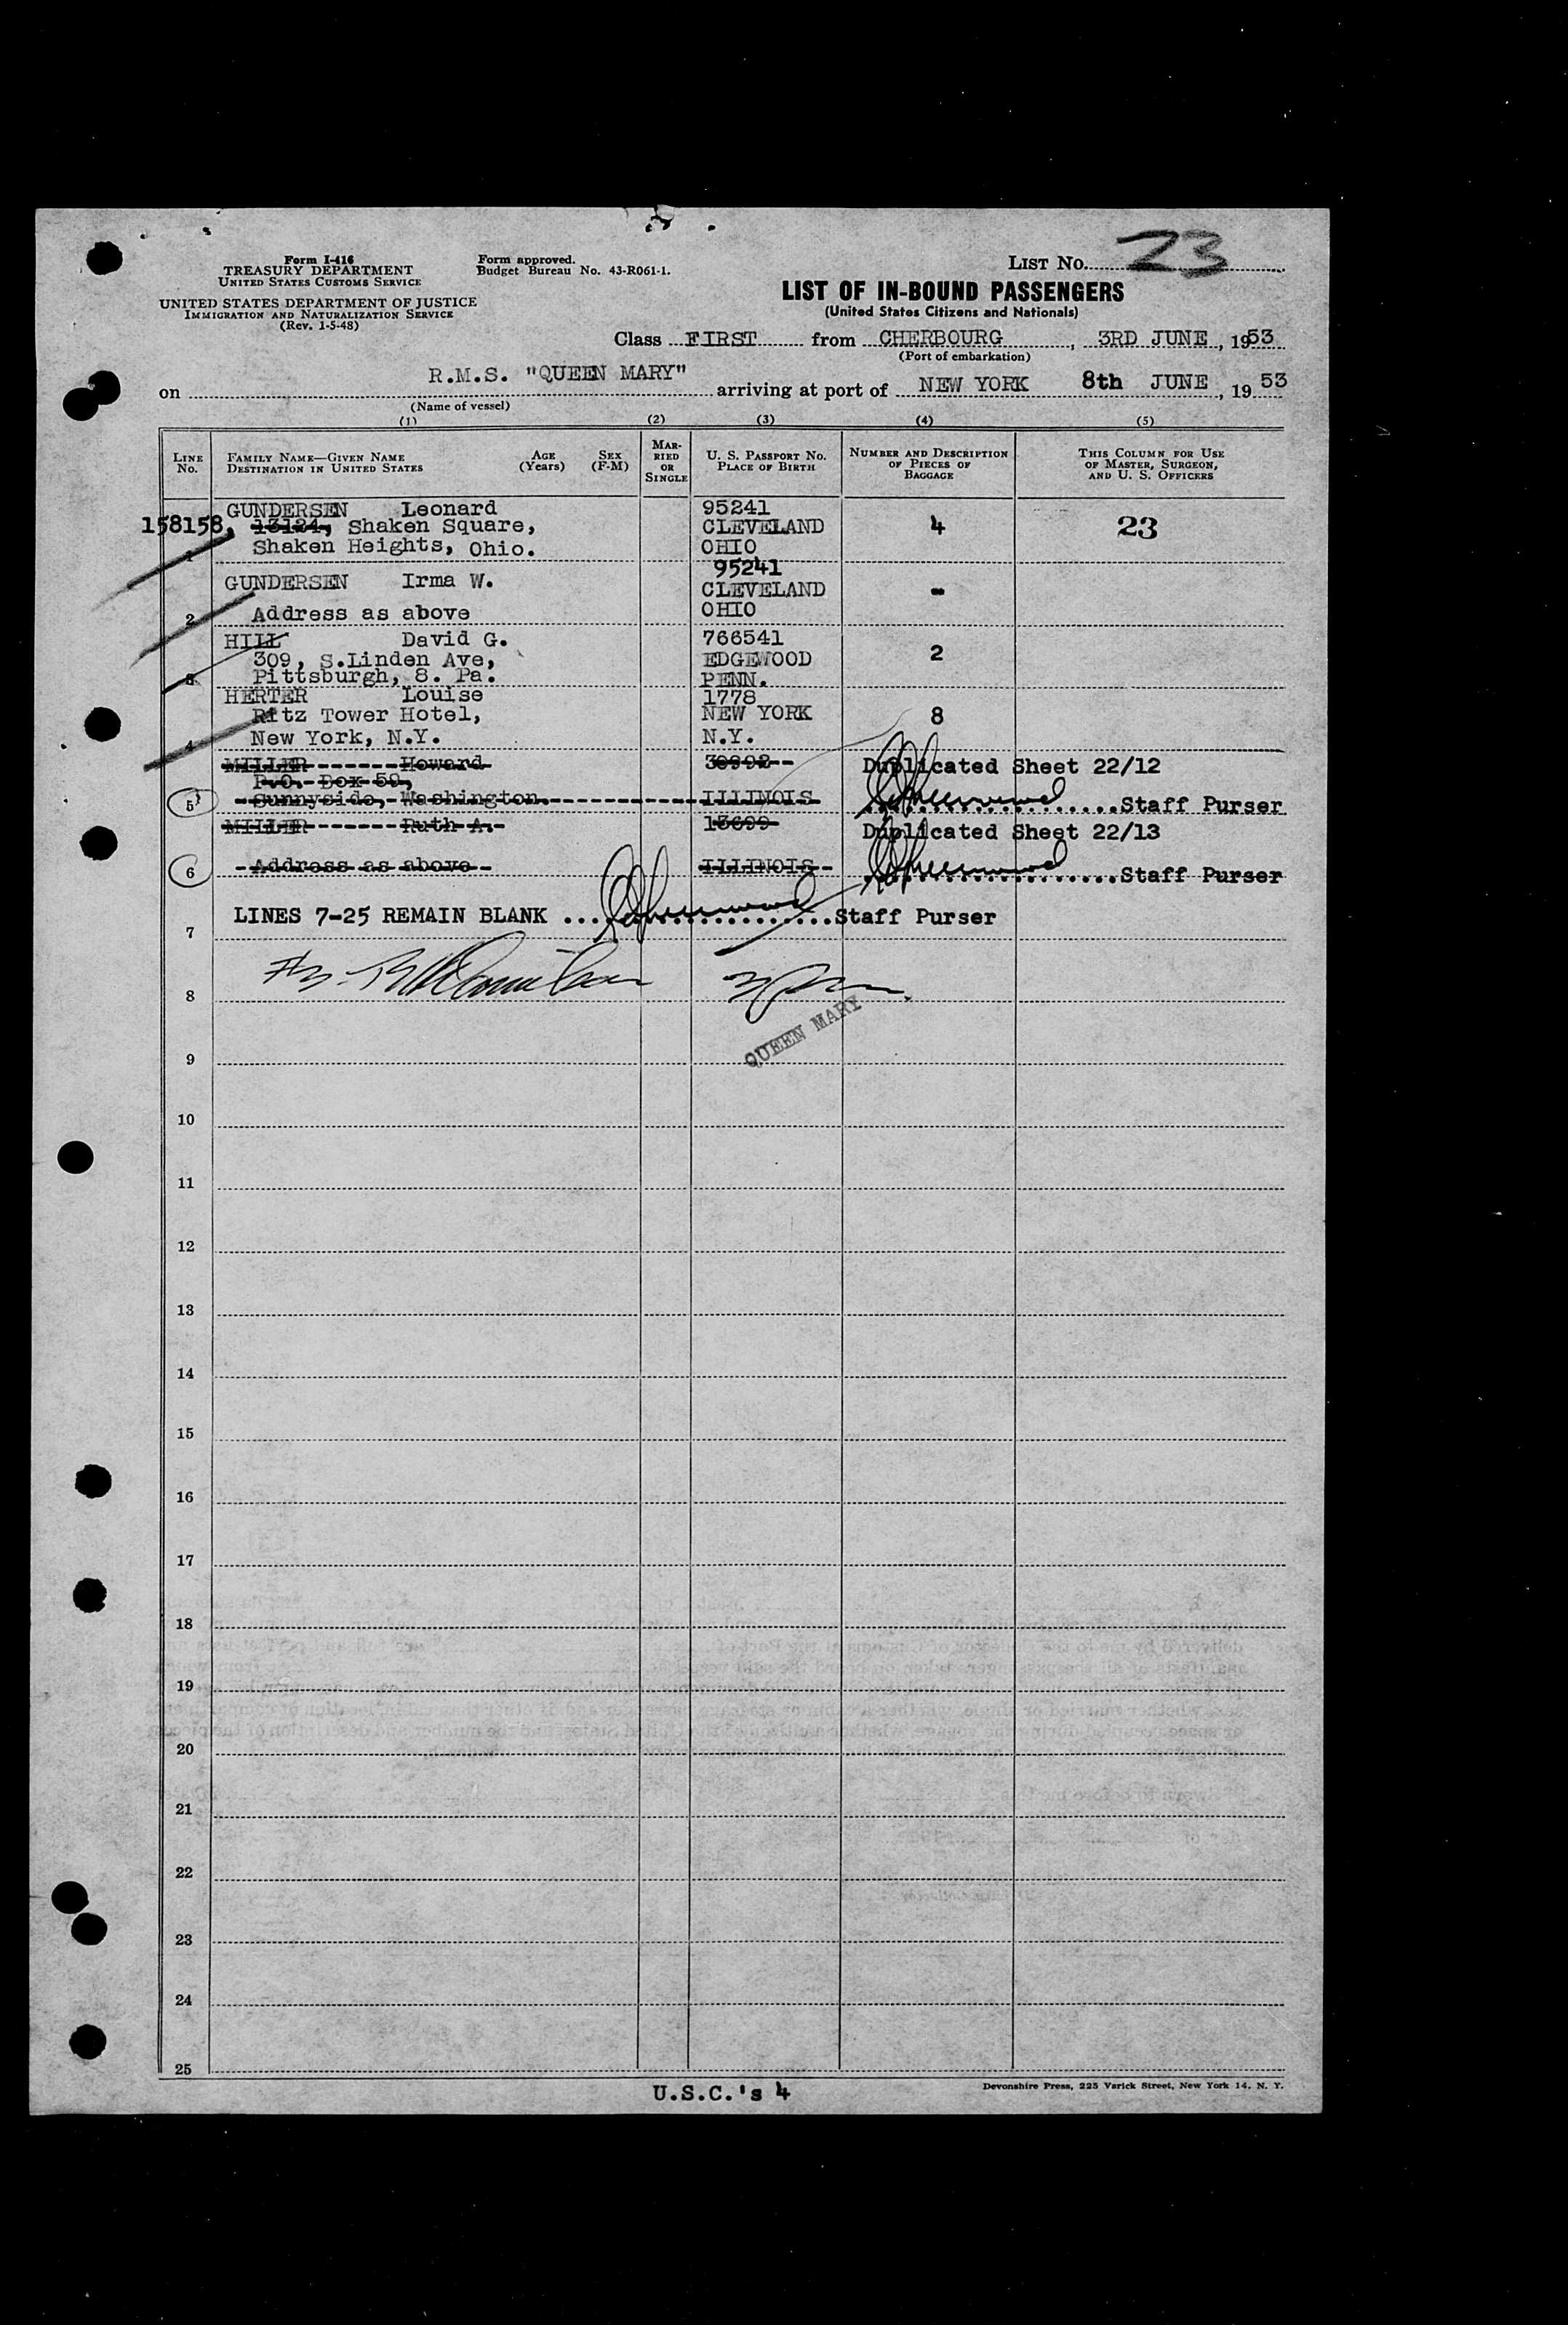 Form I-416
TREASURY DEPARTMENT
UNITED STATES CUSTOMS SERVICE
UNITED STATES DEPARTMENT OF JUSTICE
IMMIGRATION AND NATURALIZATION SERVICE
(Rev. 1-5-48)
Form approved.
Budget Bureau No. 43-R061-1.
LIST NO. 23
LIST OF IN-BOUND PASSENGERS
(United States Citizens and Nationals)
Class FIRST from CHERBOURG, 3RD JUNE, 1953
(Port of embarkation)
on R.M.S. "QUEEN MARY" arriving at port of NEW YORK 8th JUNE, 1953
(Name of vessel)
(1) (2) (3) (4) (5)
LINE NO. FAMILY NAME—GIVEN NAME DESTINATION IN UNITED STATES AGE (Years) SEX (F-M) MARRIED OR SINGLE U. S. PASSPORT NO. PLACE OF BIRTH NUMBER AND DESCRIPTION OF PIECES OF BAGGAGE THIS COLUMN FOR USE OF MASTER, SURGEON, AND U. S. OFFICERS
GUNDERSEN Leonard 95241
158158, 13124, Shaken Square, CLEVELAND 4 23
1 Shaken Heights, Ohio. OHIO
95241
GUNDERSEN Irma W. CLEVELAND -
2 Address as above OHIO
HILL David G. 766541
309, S.Linden Ave, EDGEWOOD 2
3 Pittsburgh, 8. Pa. PENN.
HERTER Louise 1778
Ritz Tower Hotel, NEW YORK 8
4 New York, N.Y. N.Y.
MILLER Howard 30992 Duplicated Sheet 22/12
P.O. Box 59,
5 Sunnyside, Washington. ILLINOIS Staff Purser
MILLER Ruth A. 13699 Duplicated Sheet 22/13
6 Address as above ILLINOIS Staff Purser
LINES 7-25 REMAIN BLANK Staff Purser
7
8
QUEEN MARY
9
10
11
12
13
14
15
16
17
18
19
20
21
22
23
24
25
U.S.C.'s 4
Devonshire Press, 225 Varick Street, New York 14, N. Y.